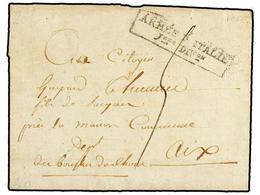 ARMÉE D'ITALIE
Jere DIVon
Au Citoyen
Gaspard
fils de
près la maison Commune
dept
des bouches du rhone
Aix